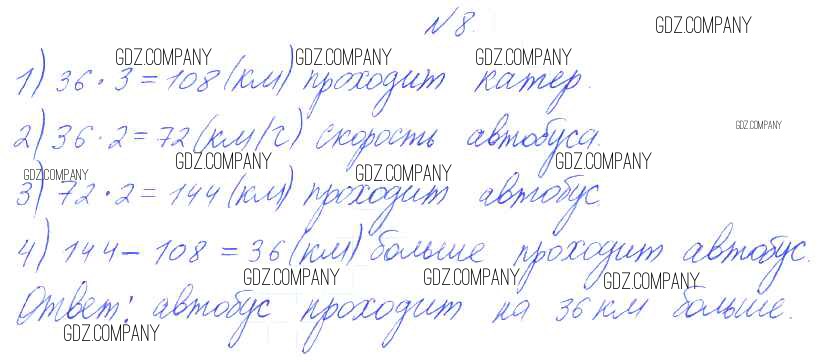 №8.
GDZ.COMPANY
GDZ.COMPANY GDZ.COMPANY GDZ.COMPANY
1) 36 · 3 = 108 (км) проходит катер.
2) 36 · 2 = 72 (км/ч) скорость автобуса.
GDZ.COMPANY
GDZ.COMPANY GDZ.COMPANY GDZ.COMPANY
GDZ.COMPANY
3) 72 · 2 = 144 (км) проходит автобус
4) 144 - 108 = 36 (км) больше проходит автобус.
GDZ.COMPANY GDZ.COMPANY GDZ.COMPANY
Ответ: автобус проходит на 36 км больше.
GDZ.COMPANY